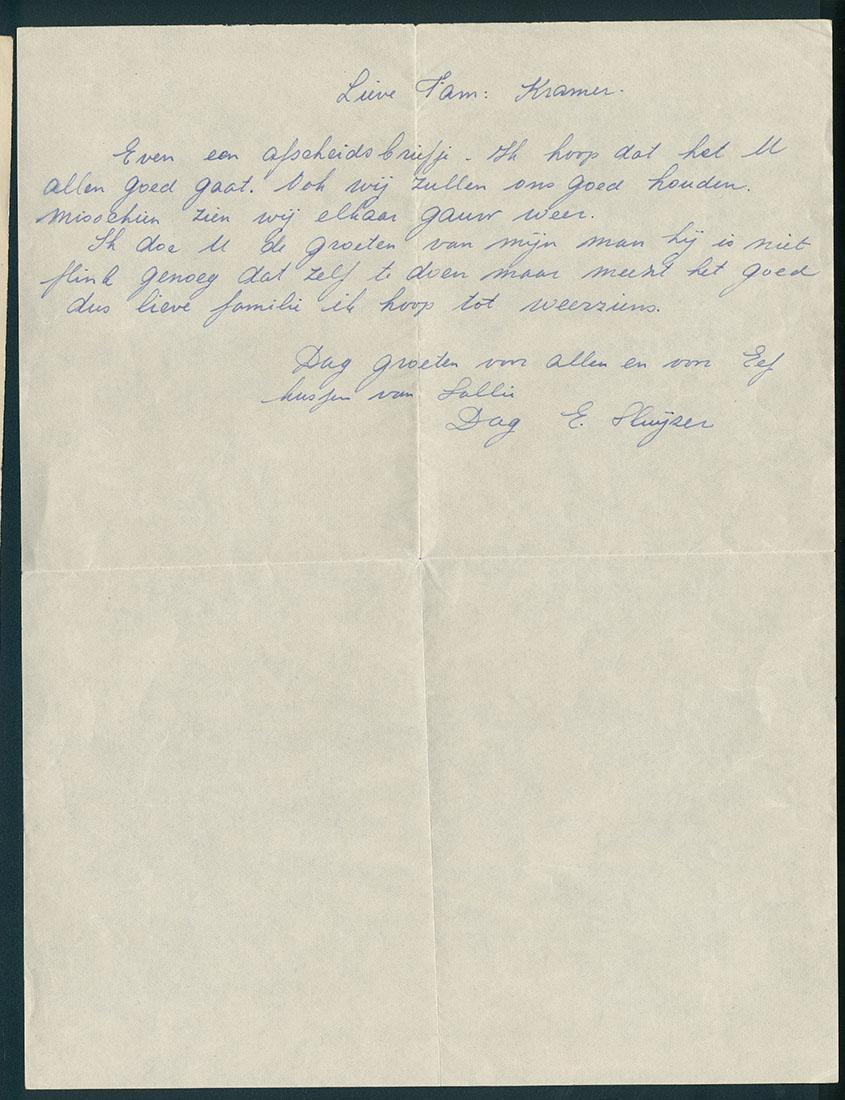 Lieve Fam: Kramer.
Even een afscheidsbriefje. Ik hoop dat het U
allen goed gaat. Ook wij zullen ons goed houden.
misschien zien wij elkaar gauw weer.
Ik doe U de groeten van mijn man hij is niet
flink genoeg dat zelf te doen maar meent het goed
dus lieve familie ik hoop tot weerziens.
Dag groeten voor allen en voor Eef
kusjen van Sallie
Dag E. Sluijzer